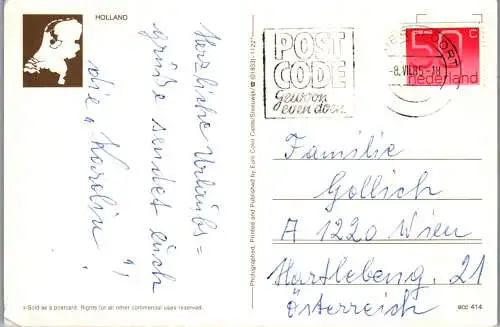 HOLLAND
Herzliche Urlaubs=
grüße sendet euch
die "Karolin"!
POST
CODE
Gewoon
even doen.
-8.VII.85-18
50c
nederland
Familie
Gollich
A 1220 Wien
Hartlebeng. 21
Österreich
Photographed, Printed and Published by Euro Color Cards/Sneeuwijk
Sold as a postcard. Rights for all other commercial uses reserved.
ecc 414